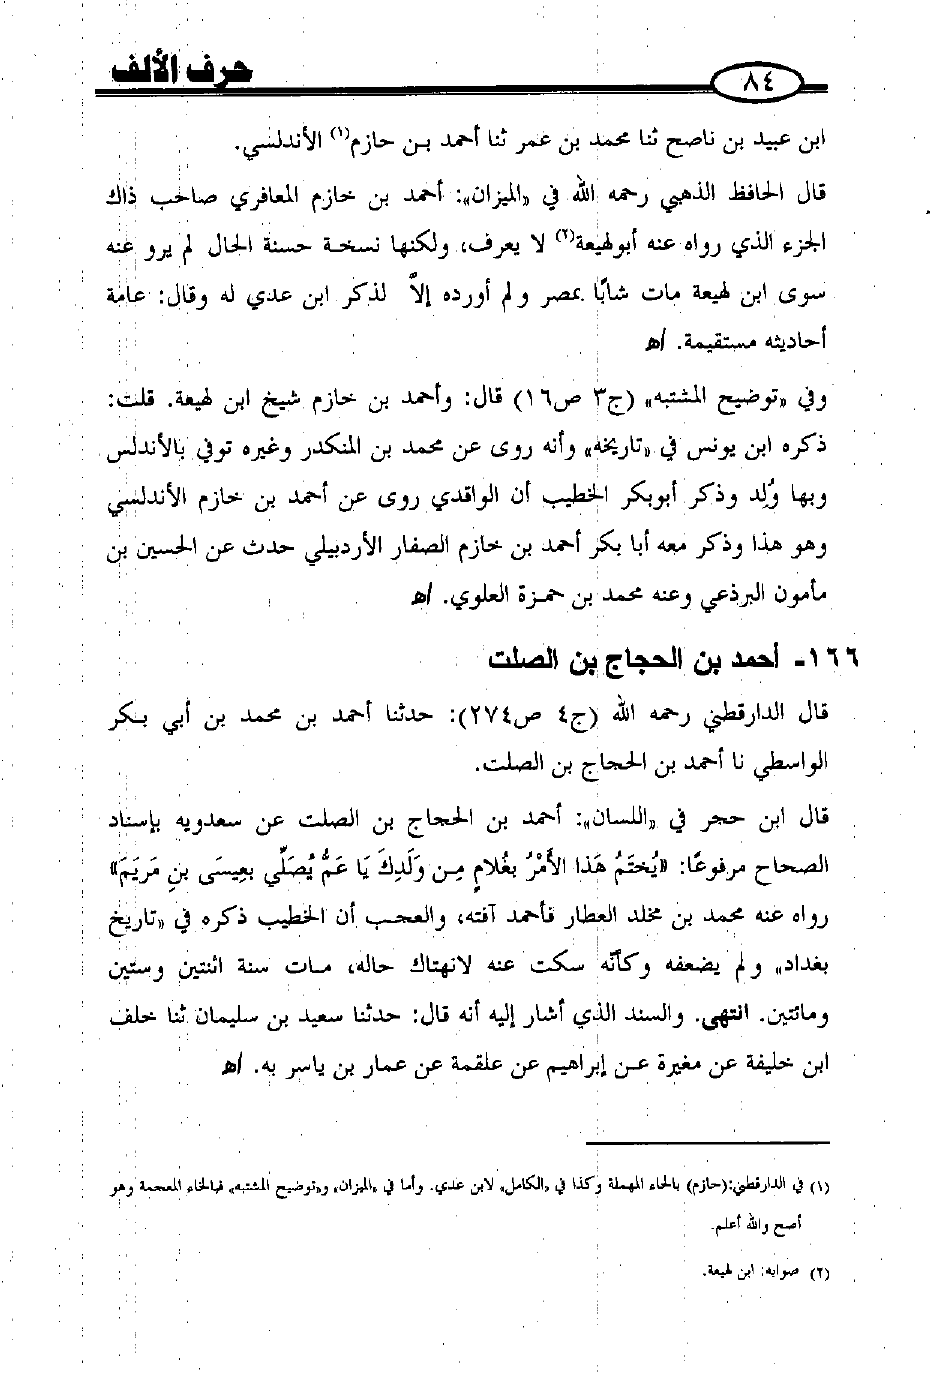 ٨٤ حرف الألف
ابن عبيد بن ناصح ثنا محمد بن عمر ثنا أحمد بـن حازم(١) الأندلسي.
قال الحافظ الذهبي رحمه الله في «الميزان»: أحمد بن خازم المعافري صاحب ذاك
الجزء الذي رواه عنه أبولهيعة(٢) لا يعرف، ولكنها نسخة حسنة الحال لم يرو عنه
سوى ابن لهيعة مات شابًا بمصر ولم أورده إلاَّ لذكر ابن عدي له وقال: عامة
أحاديثه مستقيمة. اﻫ
وفي «توضيح المشتبه» (ج٣ ص١٦) قال: وأحمد بن خازم شيخ ابن لهيعة. قلت:
ذكره ابن يونس في «تاريخه» وأنه روى عن محمد بن المنكدر وغيره توفي بالأندلس
وبها وُلِد وذكر أبوبكر الخطيب أن الواقدي روى عن أحمد بن خازم الأندلسي
وهو هذا وذكر معه أبا بكر أحمد بن خازم الصفار الأردبيلي حدث عن الحسين بن
مأمون البرذعي وعنه محمد بن حمـزة العلوي. اﻫ
١٦٦- أحمد بن الحجاج بن الصلت
قال الدارقطني رحمه الله (ج٤ ص٢٧٤): حدثنا أحمد بن محمد بن أبي بـكر
الواسطي نا أحمد بن الحجاج بن الصلت.
قال ابن حجر في «اللسان»: أحمد بن الحجاج بن الصلت عن سعدويه بإسناد
الصحاح مرفوعًا: «يُختَمُ هَذا الأَمْرُ بغُلامٍ مِـن وَلَدِكَ يَا عَمُّ يُصَلِّي بعِيسَى بنِ مَريَمَ»
رواه عنه محمد بن مخلد العطار فأحمد آفته، والعجب أن الخطيب ذكره في «تاريخ
بغداد» ولم يضعفه وكأنّه سكت عنه لانهتاك حاله، مـات سنة اثنتين وستين
ومائتين. انتهى. والسند الذي أشار إليه أنه قال: حدثنا سعيد بن سليمان ثنا خلف
ابن خليفة عن مغيرة عـن إبراهيم عن علقمة عن عمار بن ياسر به. اﻫ
(١) في الدارقطني:(حازم) بالحاء المهملة وكذا في «الكامل» لابن عدي. وأما في «الميزان» و«توضيح المشتبه» فبالخاء المعجمة وهو
أصح والله أعلم.
(٢) صوابه: ابن لهيعة.